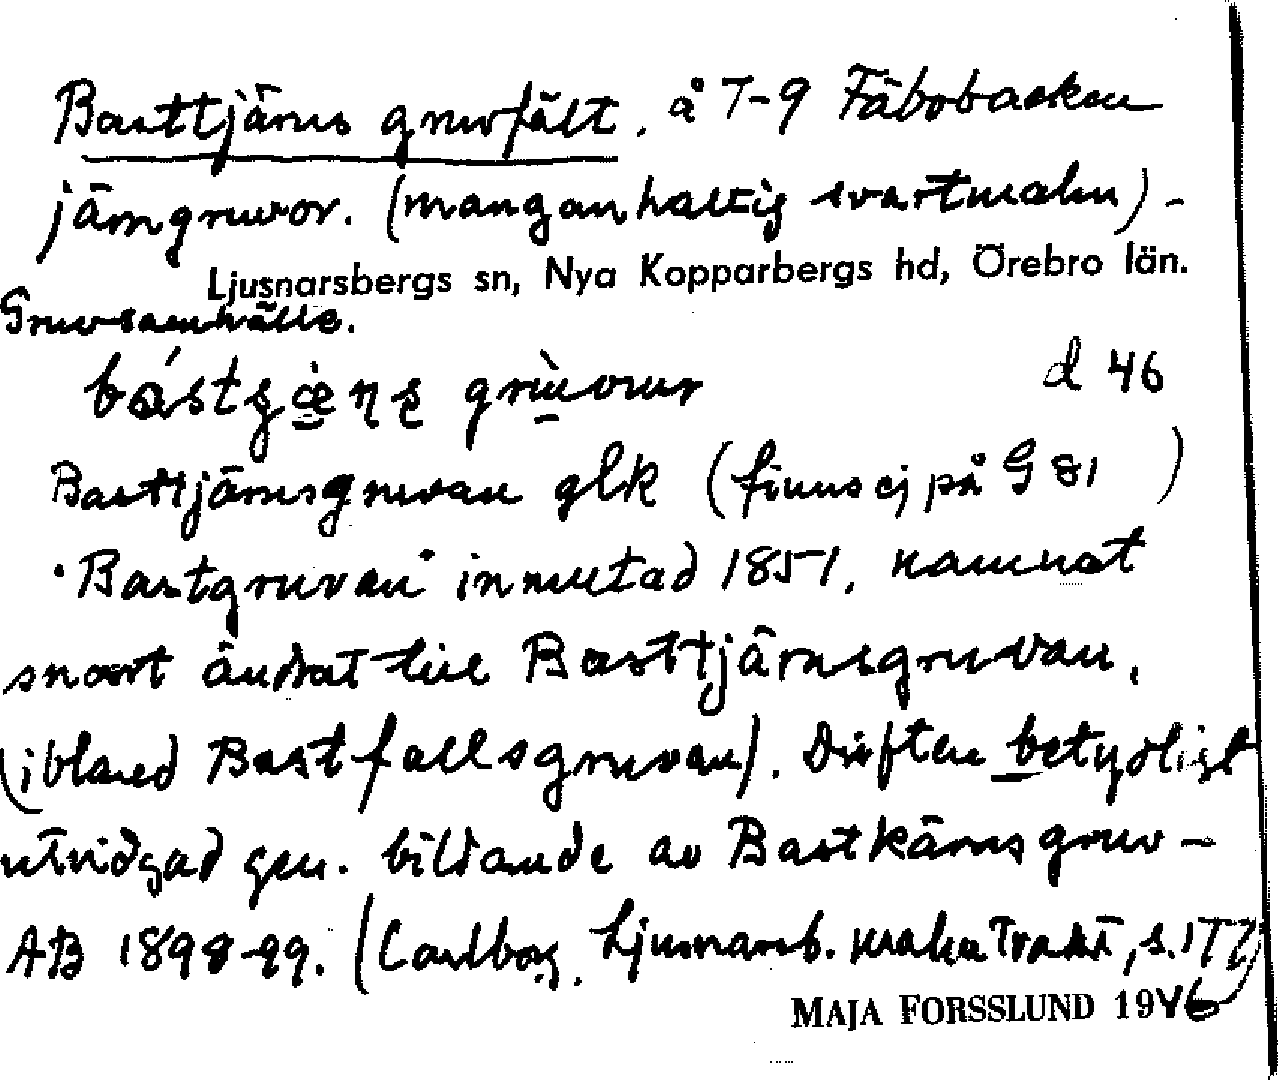 Basttjärns gruvfält. å T-9 Fäbobacken
järngruvor. (manganhaltig svartmalm) -
Ljusnarsbergs sn, Nya Kopparbergs hd, Örebro län.
Gruvsamhälle.
d 46
Basttjärnsgruvan glk (finns ej på G 81 )
"Bastgruvan" inmutad 1851, namnet
snart ändrat till Basttjärnsgruvan,
(ibland Bastfallsgruvan). Driften betydligt
utvidgad gen. bildande av Bastkärns gruv-
AB 1898-99. (Carlborg, Ljusnarsb. malmtrakt, s. 177)
MAJA FORSSLUND 1946